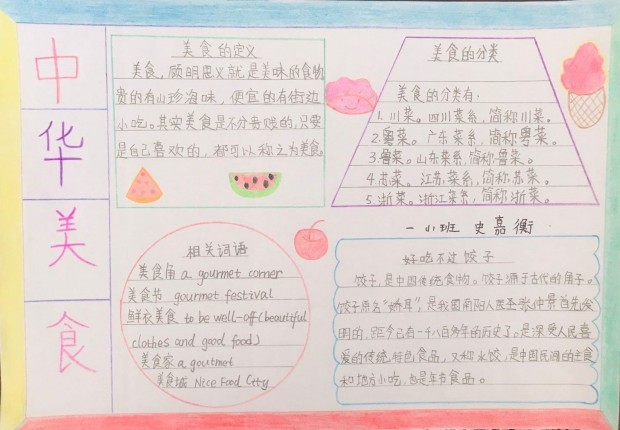 中
华
美
食
美食的定义
美食,顾明思义就是美味的食物
贵的有山珍海味,便宜的有街边
小吃。其实美食是不分贵贱的,只要
是自己喜欢的,都可以称之为美食。
美食的分类
美食的分类有:
1.川菜。四川菜系,简称川菜。
2.粤菜。广东菜系,简称粤菜。
3.鲁菜。山东菜系,简称鲁菜。
4.苏菜。江苏菜系,简称苏菜。
5.浙菜。浙江菜系,简称浙菜。
一小班 史嘉衡
相关词语
美食角 a gourmet corner
美食节 gourmet festival
鲜衣美食 to be well-off(beautiful
clothes and good food)
美食家 a goutmet
美食城 Nice Food City
好吃不过饺子
饺子,是中国传统食物。饺子源于古代的角子。
饺子原名“娇耳”,是我国南阳人医圣张仲景首先发
明的,距今已有一千八百多年的历史了。是深受人民喜
爱的传统特色食品,又称水饺,是中国民间的主食
和地方小吃,也是年节食品。